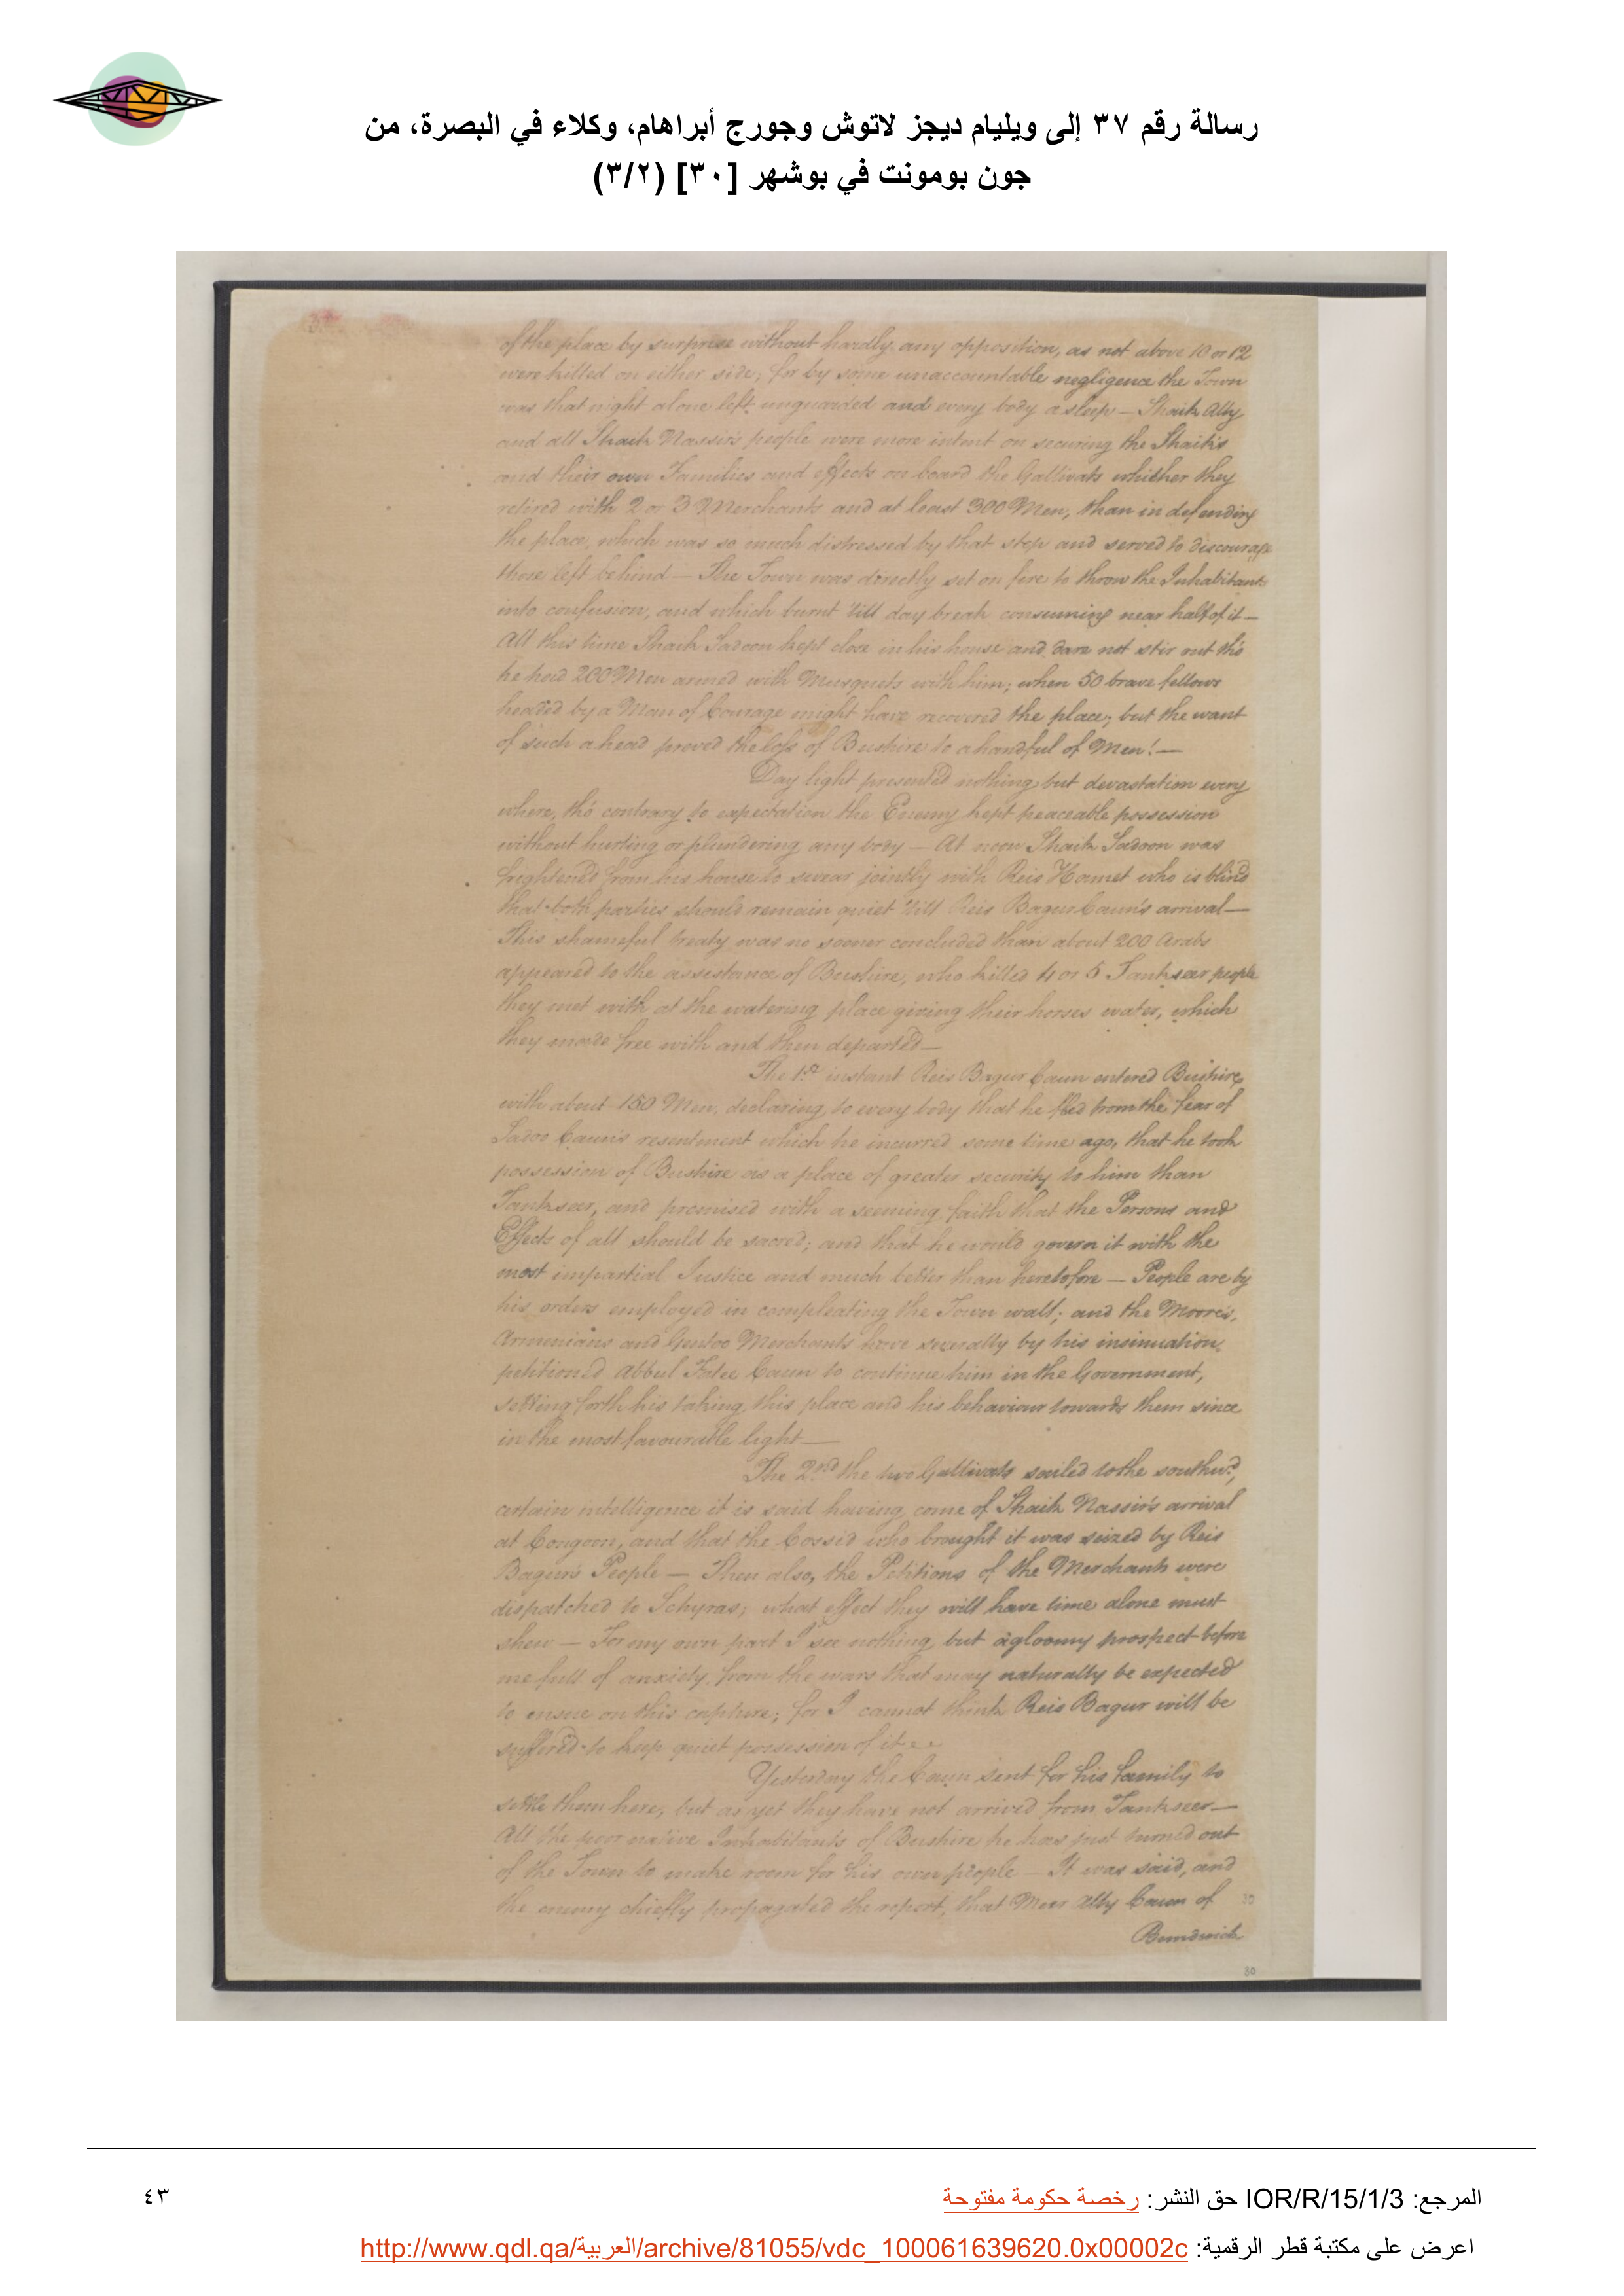 رسالة رقم ٣٧ إلى ويليام ديجز لاتوش وجورج أبراهام، وكلاء في البصرة، من
جون بومونت في بوشهر [٣٠] (٣/٢)
of the place by surprise without hardly any opposition, as not above 10 or 12
were killed on either side; for by some unaccountable negligence the Town
was that night alone left unguarded and every body asleep — Shaik Ally
and all Shaik Nassir's people were more intent on securing the Shaik's
and their own Families and effects on board the Gallivats whither they
retired with 2 or 3 Merchants and at least 300 Men, than in defending
the place, which was so much distressed by that step and served to discourage
those left behind — The Town was directly set on fire to throw the Inhabitants
into confusion, and which burnt 'till day break consuming near half of it —
All this time Shaik Sadoon kept close in his house and dare not stir out tho'
he had 200 Men armed with Musquets with him; when 50 brave fellows
headed by a Man of Courage might have recovered the place; but the want
of such a head proved the loss of Bushire to a handful of Men! —
Day light presented nothing but devastation every
where, tho' contrary to expectation the Enemy kept peaceable possession
without hurting or plundering any body — At noon Shaik Sadoon was
frightened from his house to swear jointly with Reis Hamet who is blind
that both parties should remain quiet 'till Reis Bagur Caun's arrival —
This shameful treaty was no sooner concluded than about 200 Arabs
appeared to the assistance of Bushire, who killed 4 or 5 Tankseer people
they met with at the watering place giving their horses water, which
they made free with and then departed —
The 1st instant Reis Bagur Caun entered Bushire
with about 150 Men, declaring to every body that he fled from the fear of
Sadoo Caun's resentment which he incurred some time ago, that he took
possession of Bushire as a place of greater security to him than
Tankseer, and promised with a seeming faith that the Persons and
Effects of all should be sacred; and that he would govern it with the
most impartial Justice and much better than heretofore — People are by
his orders employed in compleating the Town wall; and the Moores,
Armenians and Gentoo Merchants have severally by his insinuation
petitioned Abbul Fatee Caun to continue him in the Government,
setting forth his taking this place and his behaviour towards them since
in the most favourable light —
The 2nd the two Gallivats sailed to the southwd,
certain intelligence it is said having come of Shaik Nassir's arrival
at Congoon, and that the Cossid who brought it was seized by Reis
Bagur's People — Then also, the Petitions of the Merchants were
dispatched to Schyras; what effect they will have time alone must
shew — For my own part I see nothing but a gloomy prospect before
me full of anxiety from the wars that may naturally be expected
to ensue on this capture; for I cannot think Reis Bagur will be
suffered to keep quiet possession of it
Yesterday the Caun sent for his family to
settle them here, but as yet they have not arrived from Tankseer —
All the poor native Inhabitants of Bushire he has just turned out
of the Town to make room for his own people — It was said, and
the enemy chiefly propagated the report, that Meer Ally Caun of
30
Bundwick
30
المرجع: IOR/R/15/1/3 حق النشر: رخصة حكومة مفتوحة
٤٣
اعرض على مكتبة قطر الرقمية: http://www.qdl.qa/العربية/archive/81055/vdc_100061639620.0x00002c